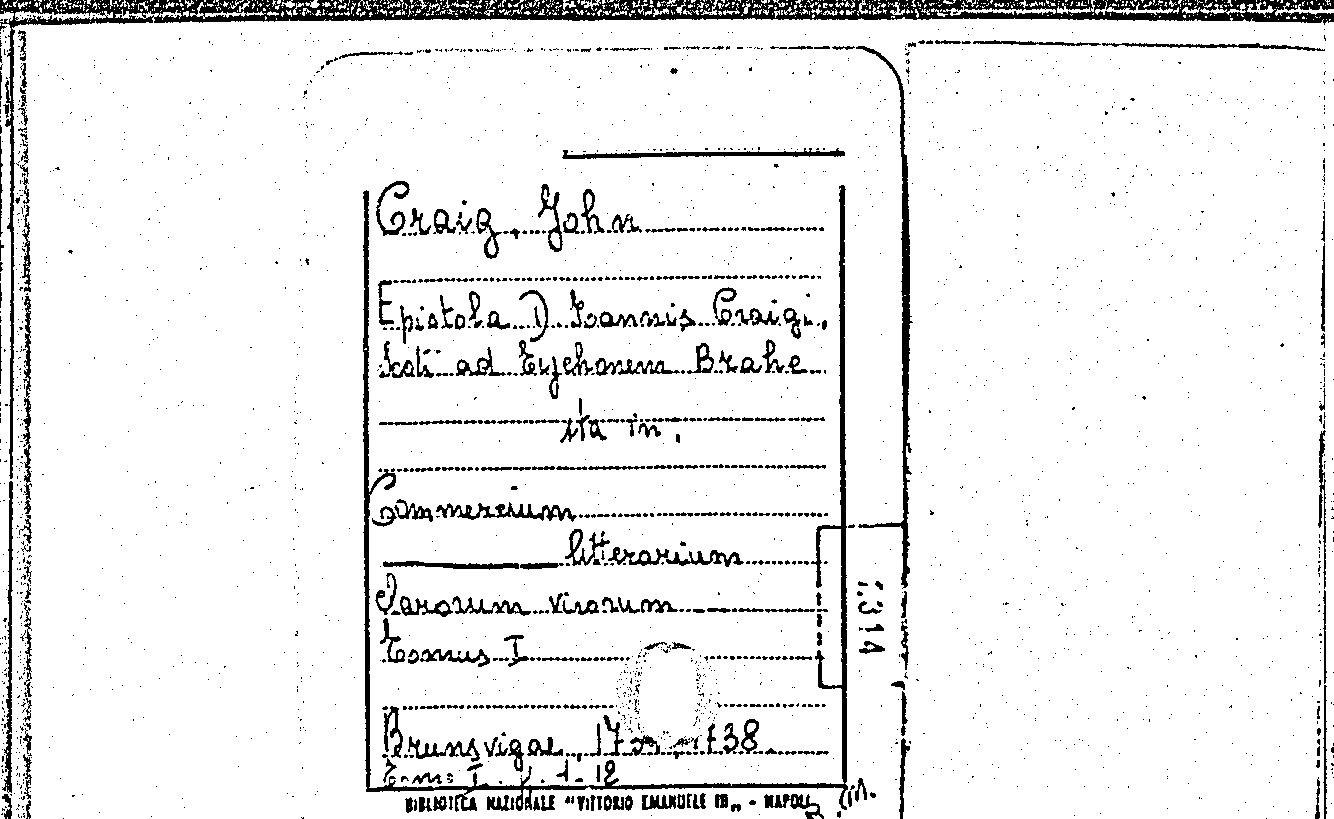 Craig, John
Epistola D. Ioannis Craigi,
Scoti ad Tychonem Brahe
sta in.
Commercium
litterarium
Clarorum virorum
Tomus I
Brunsvigae, 1738.
Tomo I. p. 1-12
BIBLIOTECA NAZIONALE "VITTORIO EMANUELE III" - NAPOLI
314